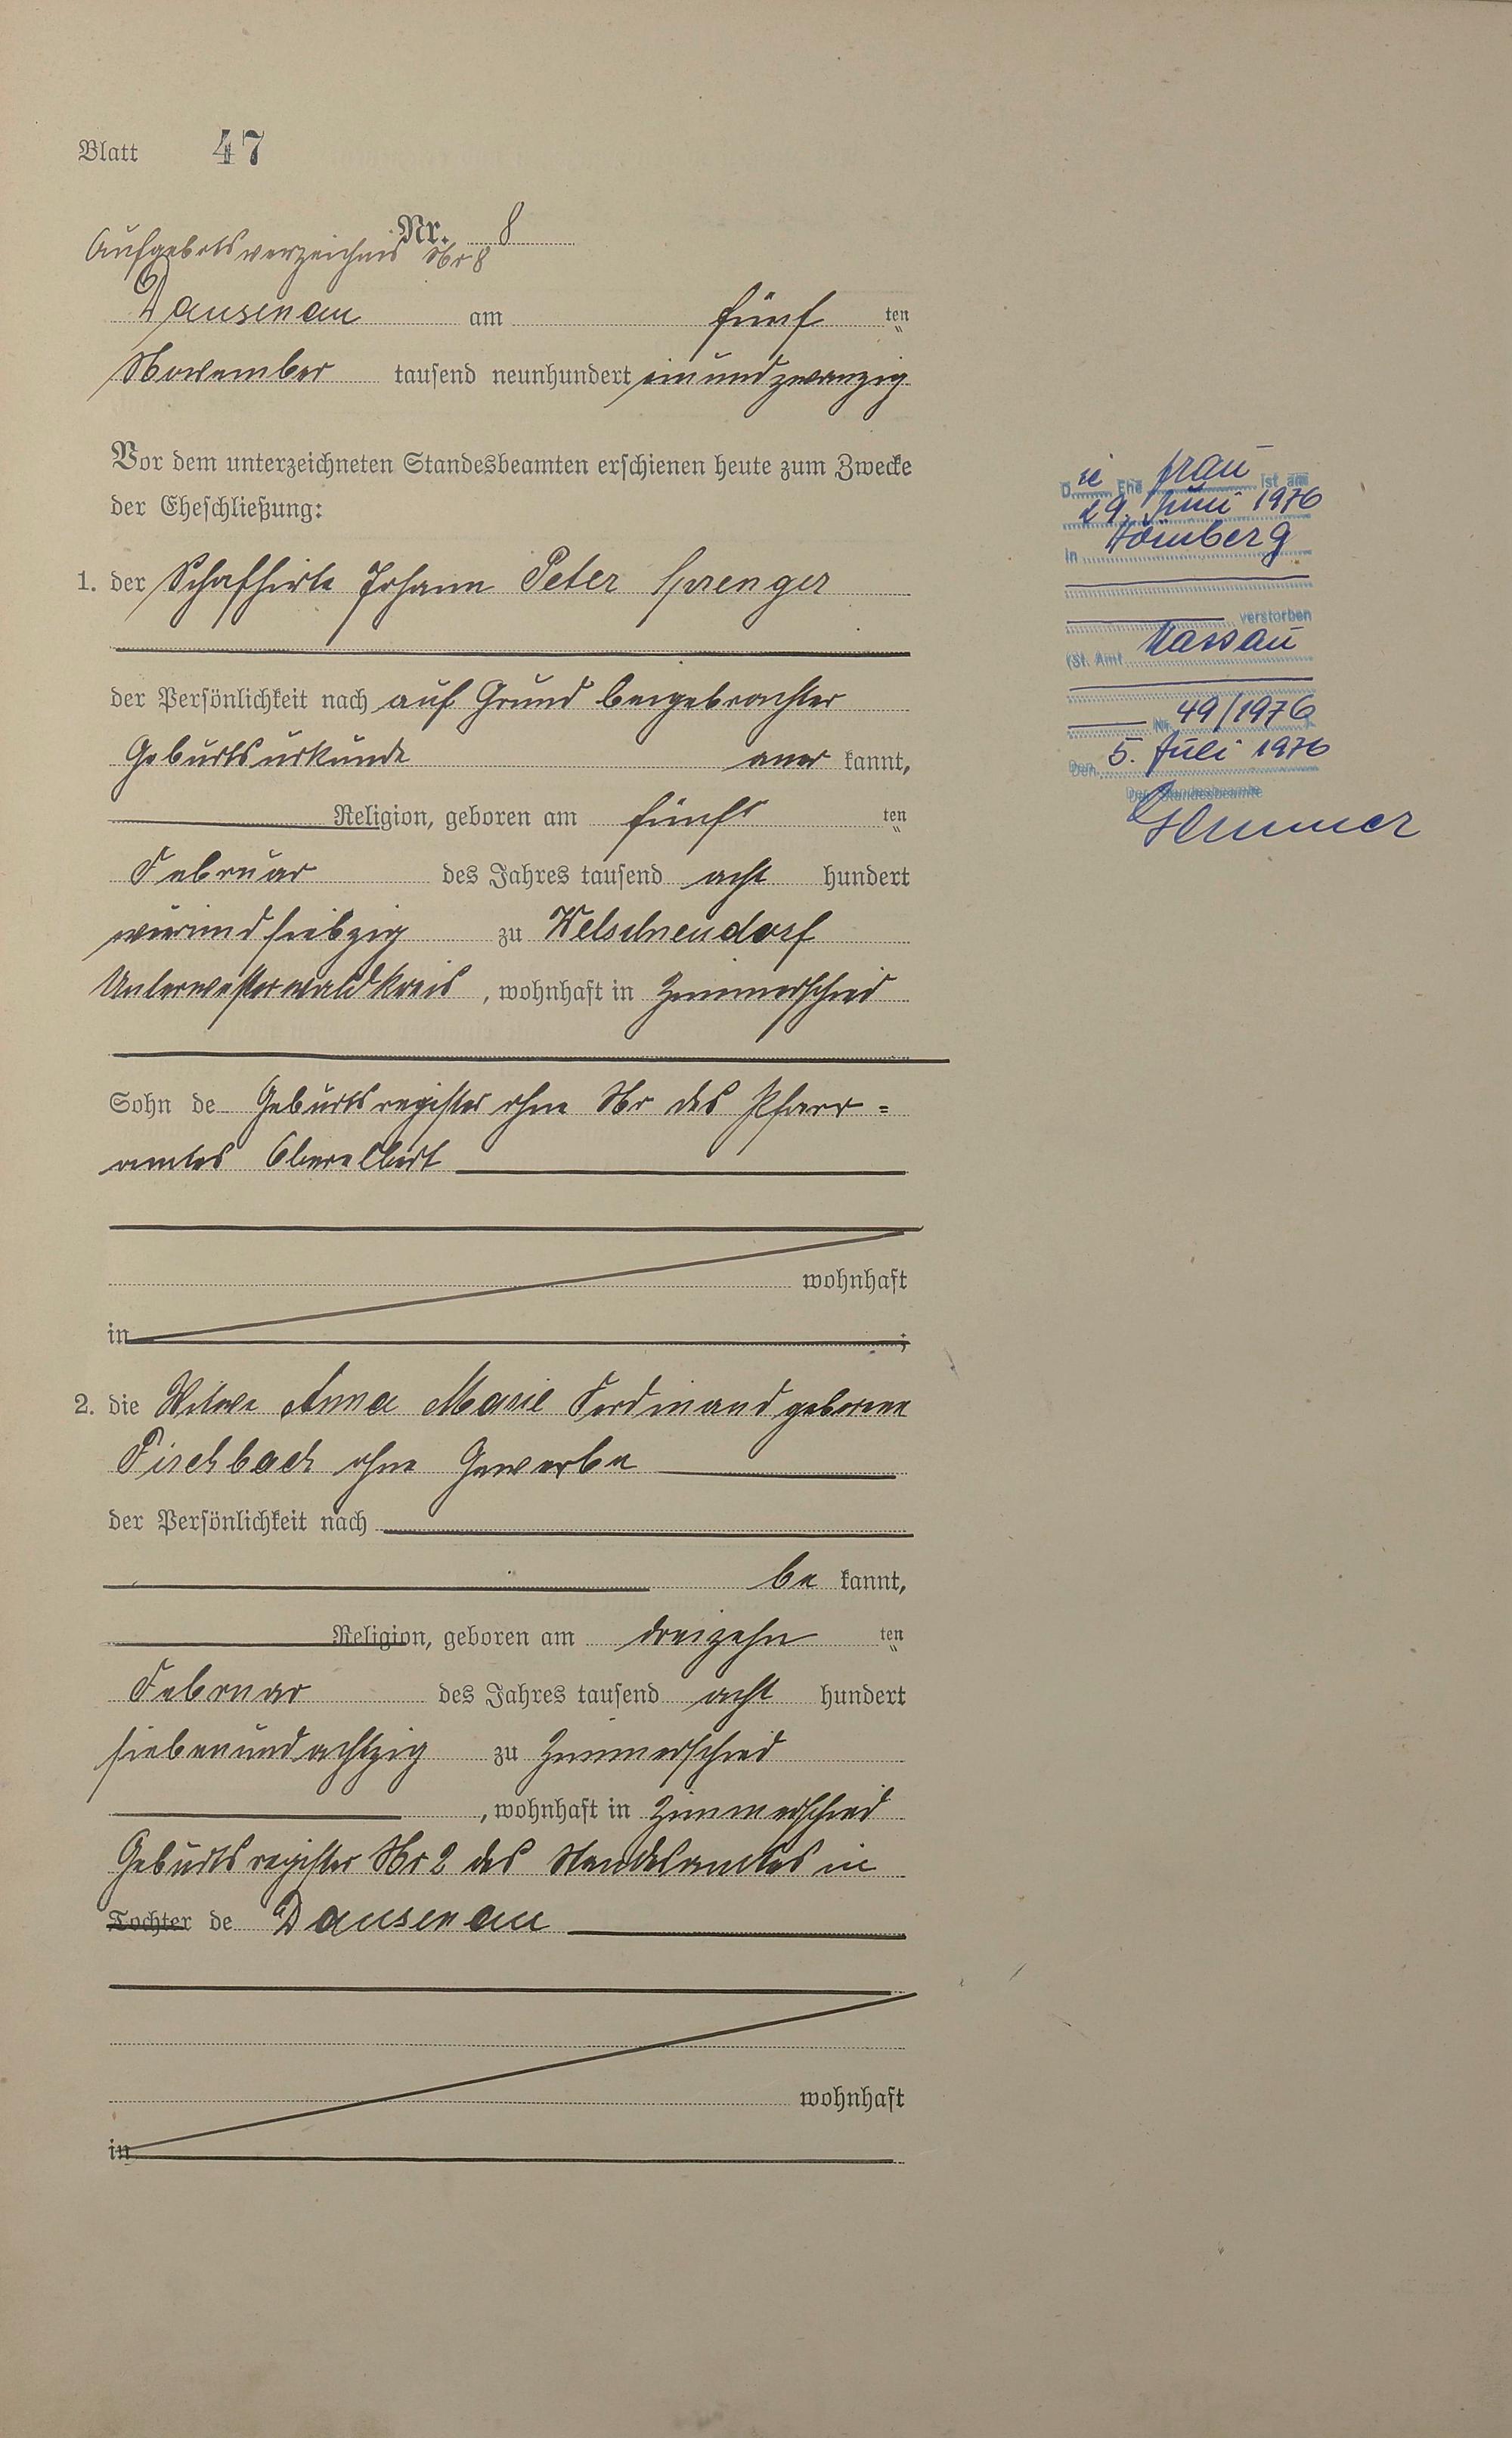 Blatt 47
Nr. 8
Aufgebotsverzeichnis Nr 8
Dausenau am fünf ten
November tausend neunhundert einundzwanzig
Vor dem unterzeichneten Standesbeamten erschienen heute zum Zwecke
der Eheschließung:
1. der Schafhirte Johann Peter Sprenger
der Persönlichkeit nach auf Grund beigebrachter
Geburtsurkunde aner kannt,
Religion, geboren am fünft ten
Februar des Jahres tausend acht hundert
vierundsiebzig zu Welschneudorf
Unterwesterwaldkreis, wohnhaft in Zimmerschied
Sohn de Geburtsregister ohne Nr des Pfarr=
amtes Oberelbert
wohnhaft
in ;
2. die Witwe Anna Marie Ferdinand geborene
Fischbach ohne Gewerbe
der Persönlichkeit nach
be kannt,
Religion, geboren am dreizehn ten
Februar des Jahres tausend acht hundert
siebenundachtzig zu Zimmerschied
, wohnhaft in Zimmerschied
Geburtsregister Nr 2 des Standesamtes in
Tochter de Dausenau
wohnhaft
in
Die Ehe frau ist am
29. Juni 1976
in Hömberg
verstorben
(St. Amt Nassau
Nr. 49/1976
Den 5. Juli 1976
Der Standesbeamte